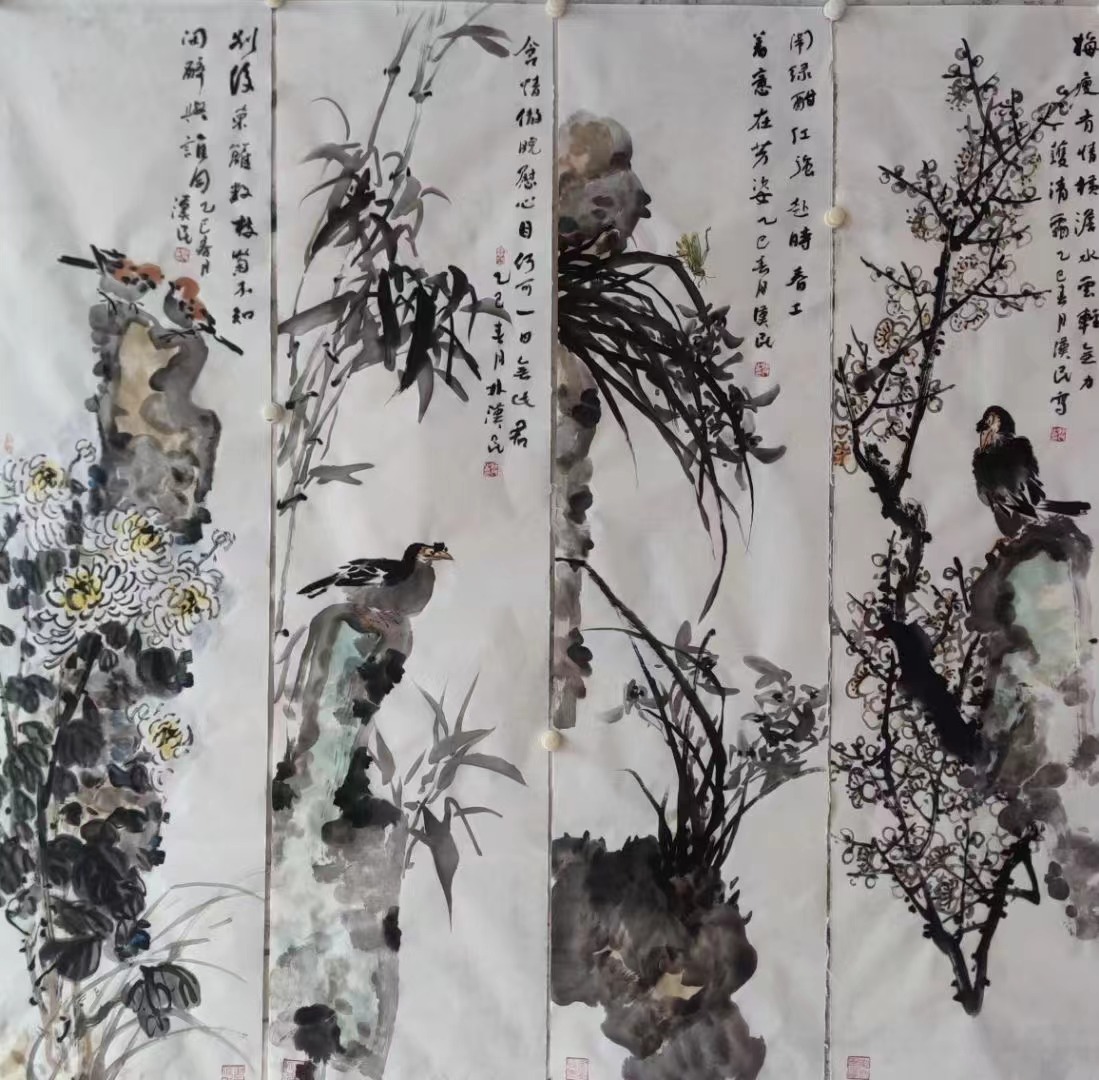 梅瘦有情橫澹水雲輕無力
護清霜乙巳春月漢民寫
鬧綠酣紅強赴時春工
着意在芳姿乙巳春月漢民
含情傲睨慰心目何可一日無此君
乙巳春月林漢民
別後東籬數枝菊不知
閒醉與誰同乙巳春月
漢民